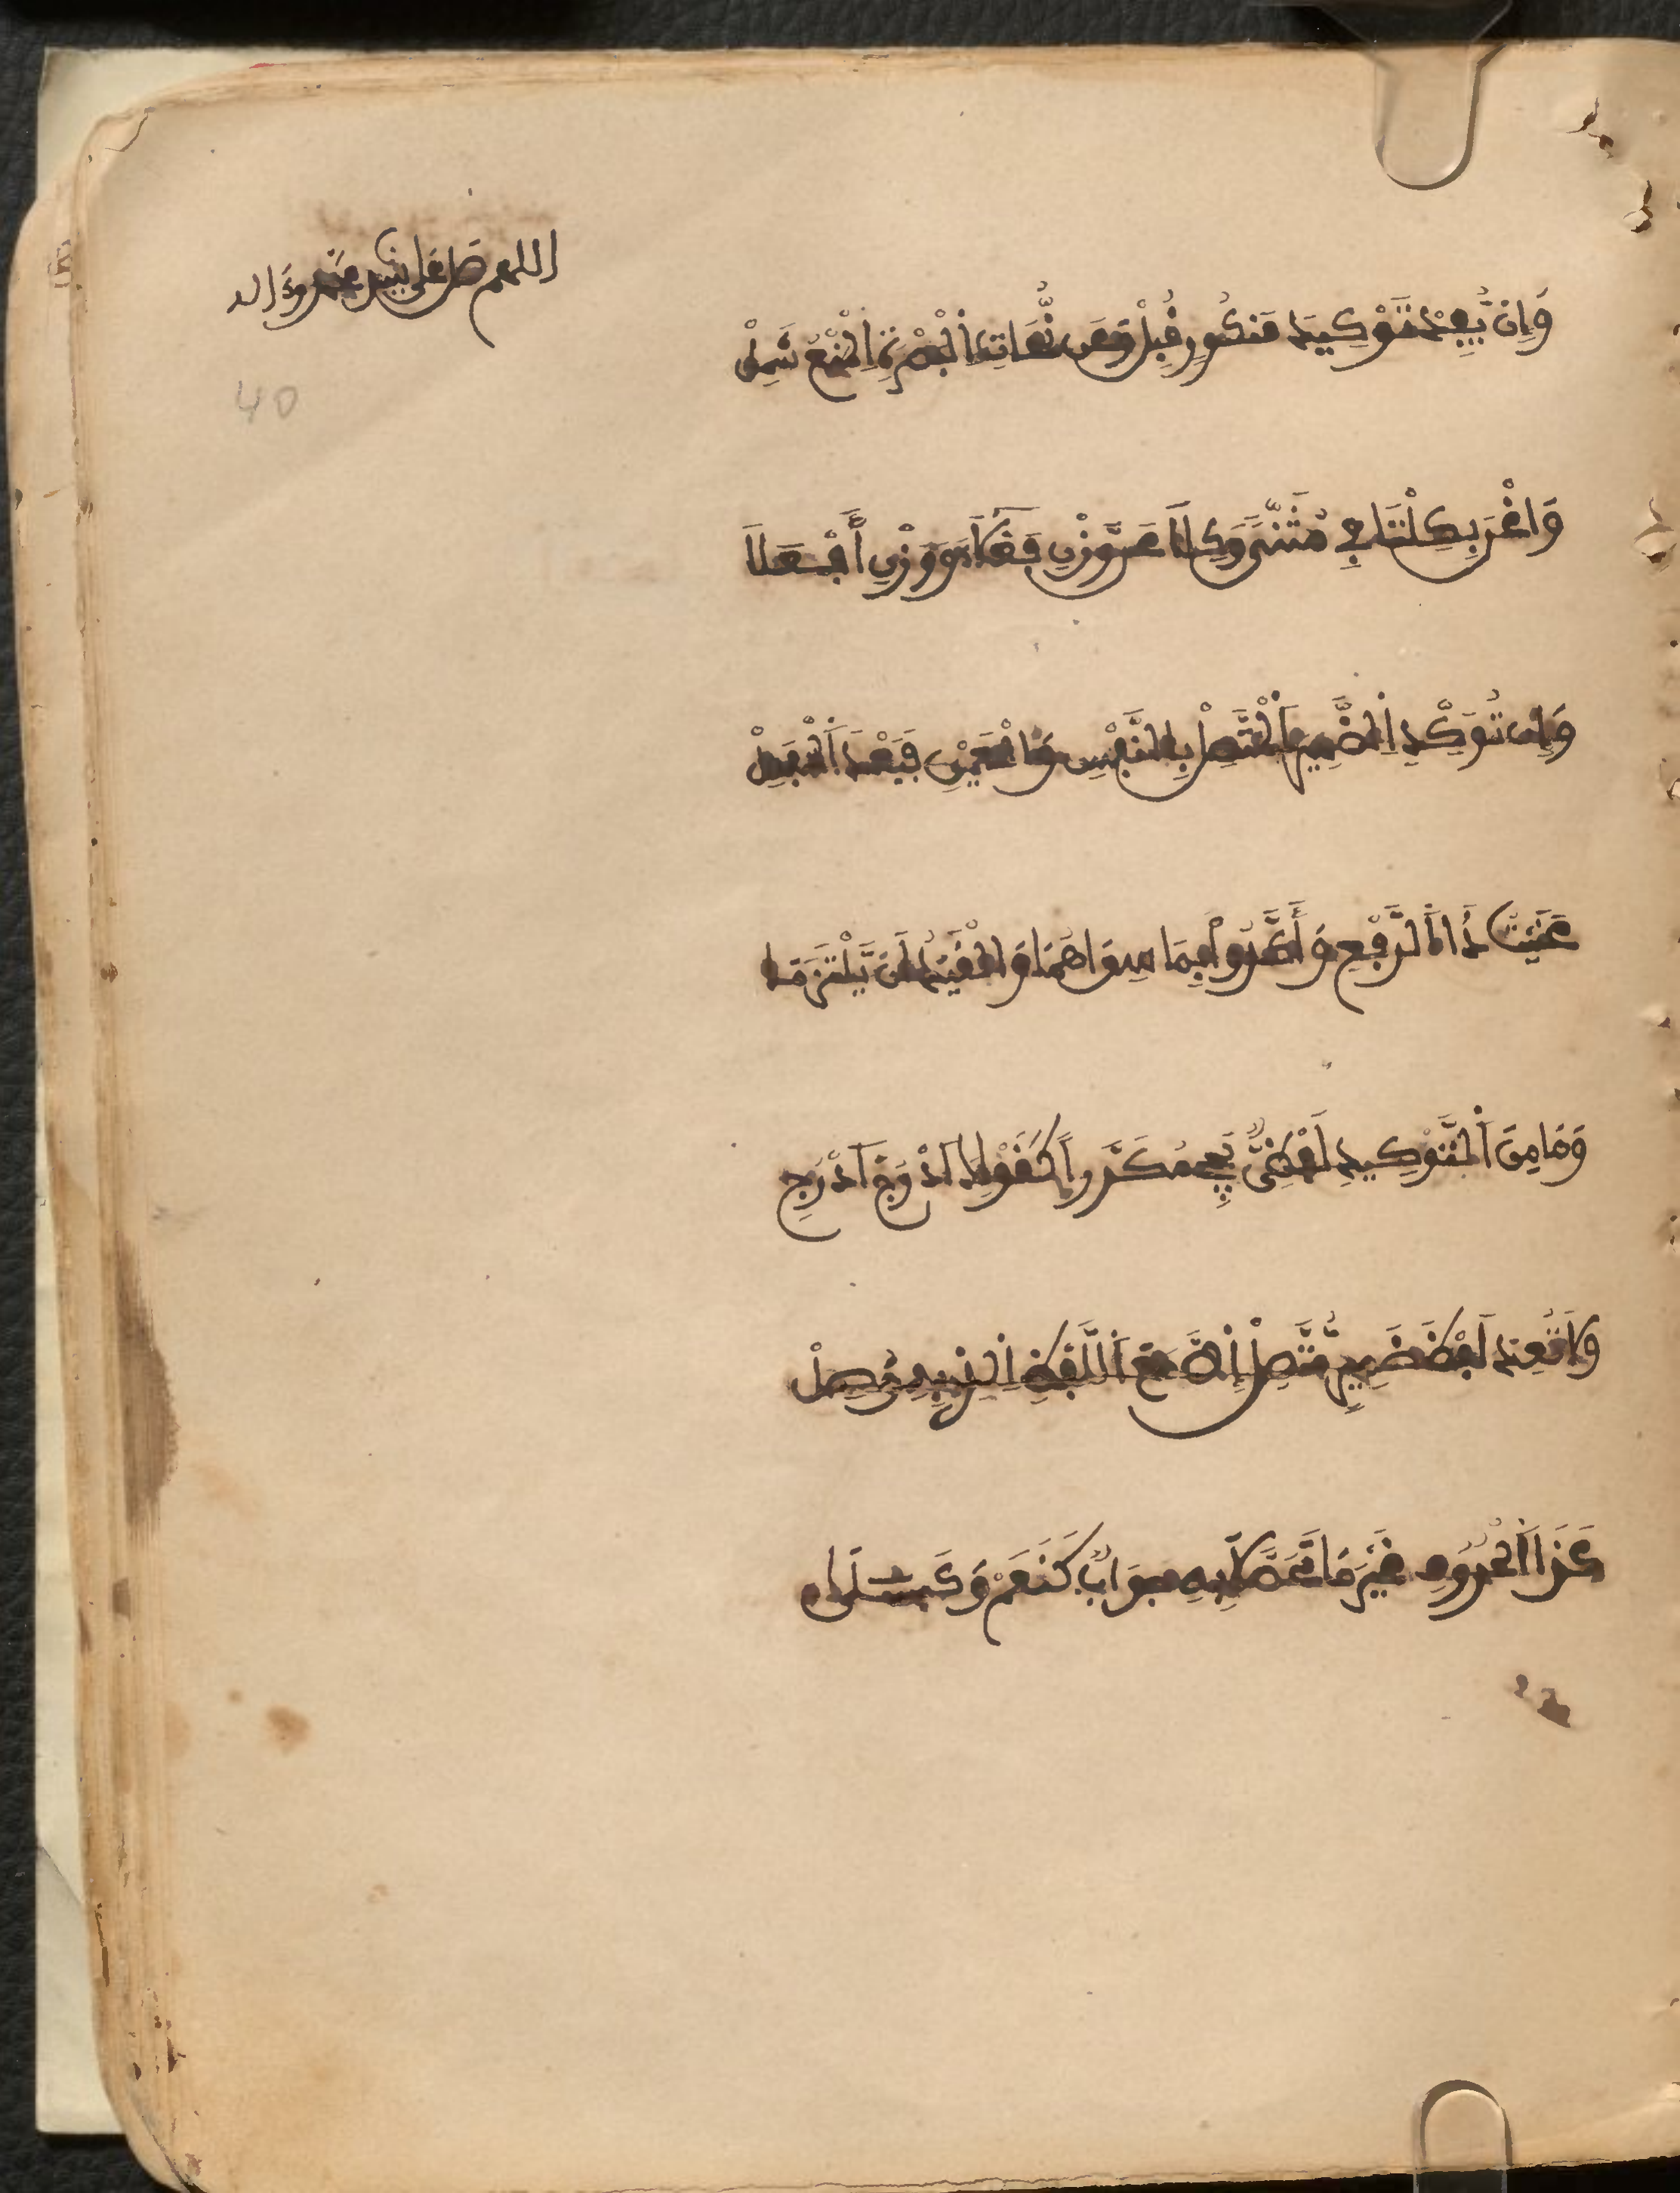 اللهم صل على سيدنا محمد وءاله
40
وَإِن يُّفِدْ تَوْكِيدُ مَنكُورٍ قُبِلْ وَعَن نُّحَاتِ الْبَصْرَةِ الْمَنْعُ شَمِلْ
وَاغْنَ بِكِلْتَا فِي مُثَنًّى وَكِلَا عَن وَّزْنِ فَعْلَاءَ وَوَزْنِ أَفْعَلَا
وَإِن تُوَكِّدِ الضَّمِيرَ الْمُتَّصِلْ بِالنَّفْسِ وَالْعَيْنِ فَبَعْدَ الْمُنفَصِلْ
عَنَيْتُ ذَا الرَّفْعِ وَأَكَّدُوا بِمَا سِوَاهُمَا وَالْقَيْدُ لَن يُّلْتَزَمَا
وَمَا مِنَ التَّوْكِيدِ لَفْظِيٌّ يَجِي مُكَرَّراً كَقَوْلِكَ ادْرُجِ ادْرُجِ
وَلَا تُعِدْ لَفْظَ ضَمِيرٍ مُّتَّصِلْ إِلَّا مَعَ اللَّفْظِ الَّذِي بِهِ وُصِلْ
كَذَا الْحُرُوفُ غَيْرَ مَا تَحَصَّلَا بِهِ جَوَابٌ كَنَعَمْ وَكَبَلَى